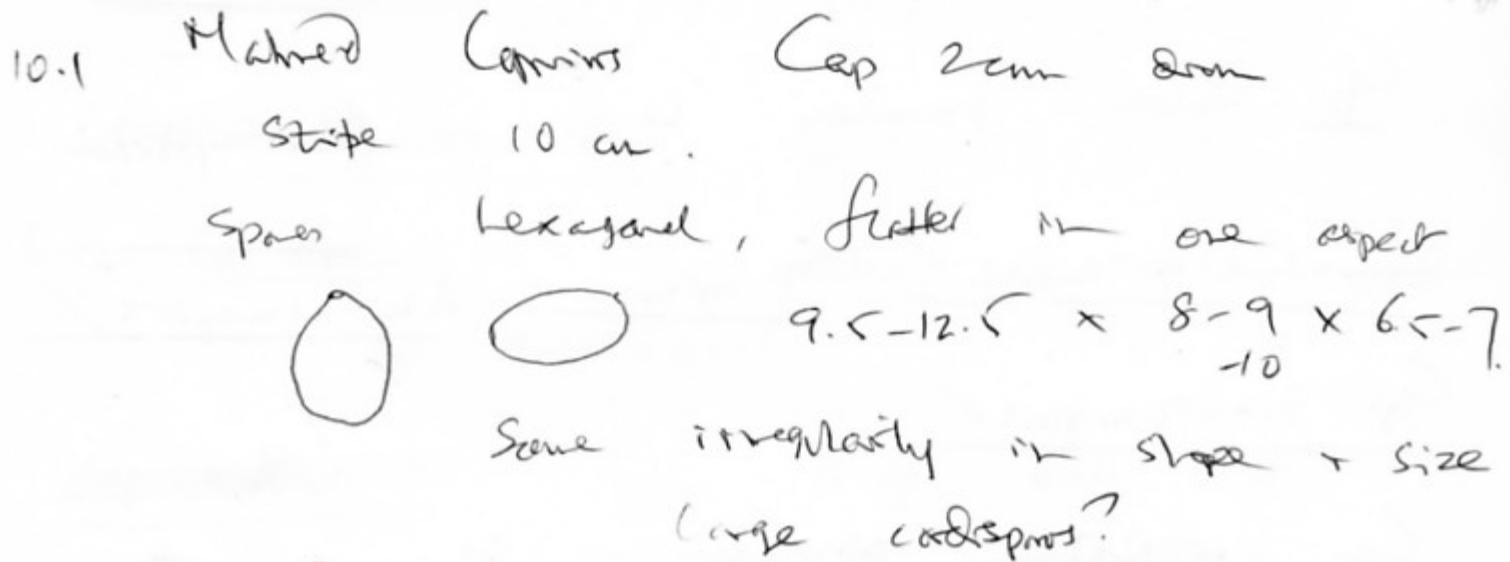 10.1 Matured Coprinus Cap 2cm diam
Stipe 10 cm.
Spores hexagonal, flatter in one aspect
9.5-12.5 x 8-9 x 6.5-7.
-10
Some irregularity in shape + size
Large cordisporus?